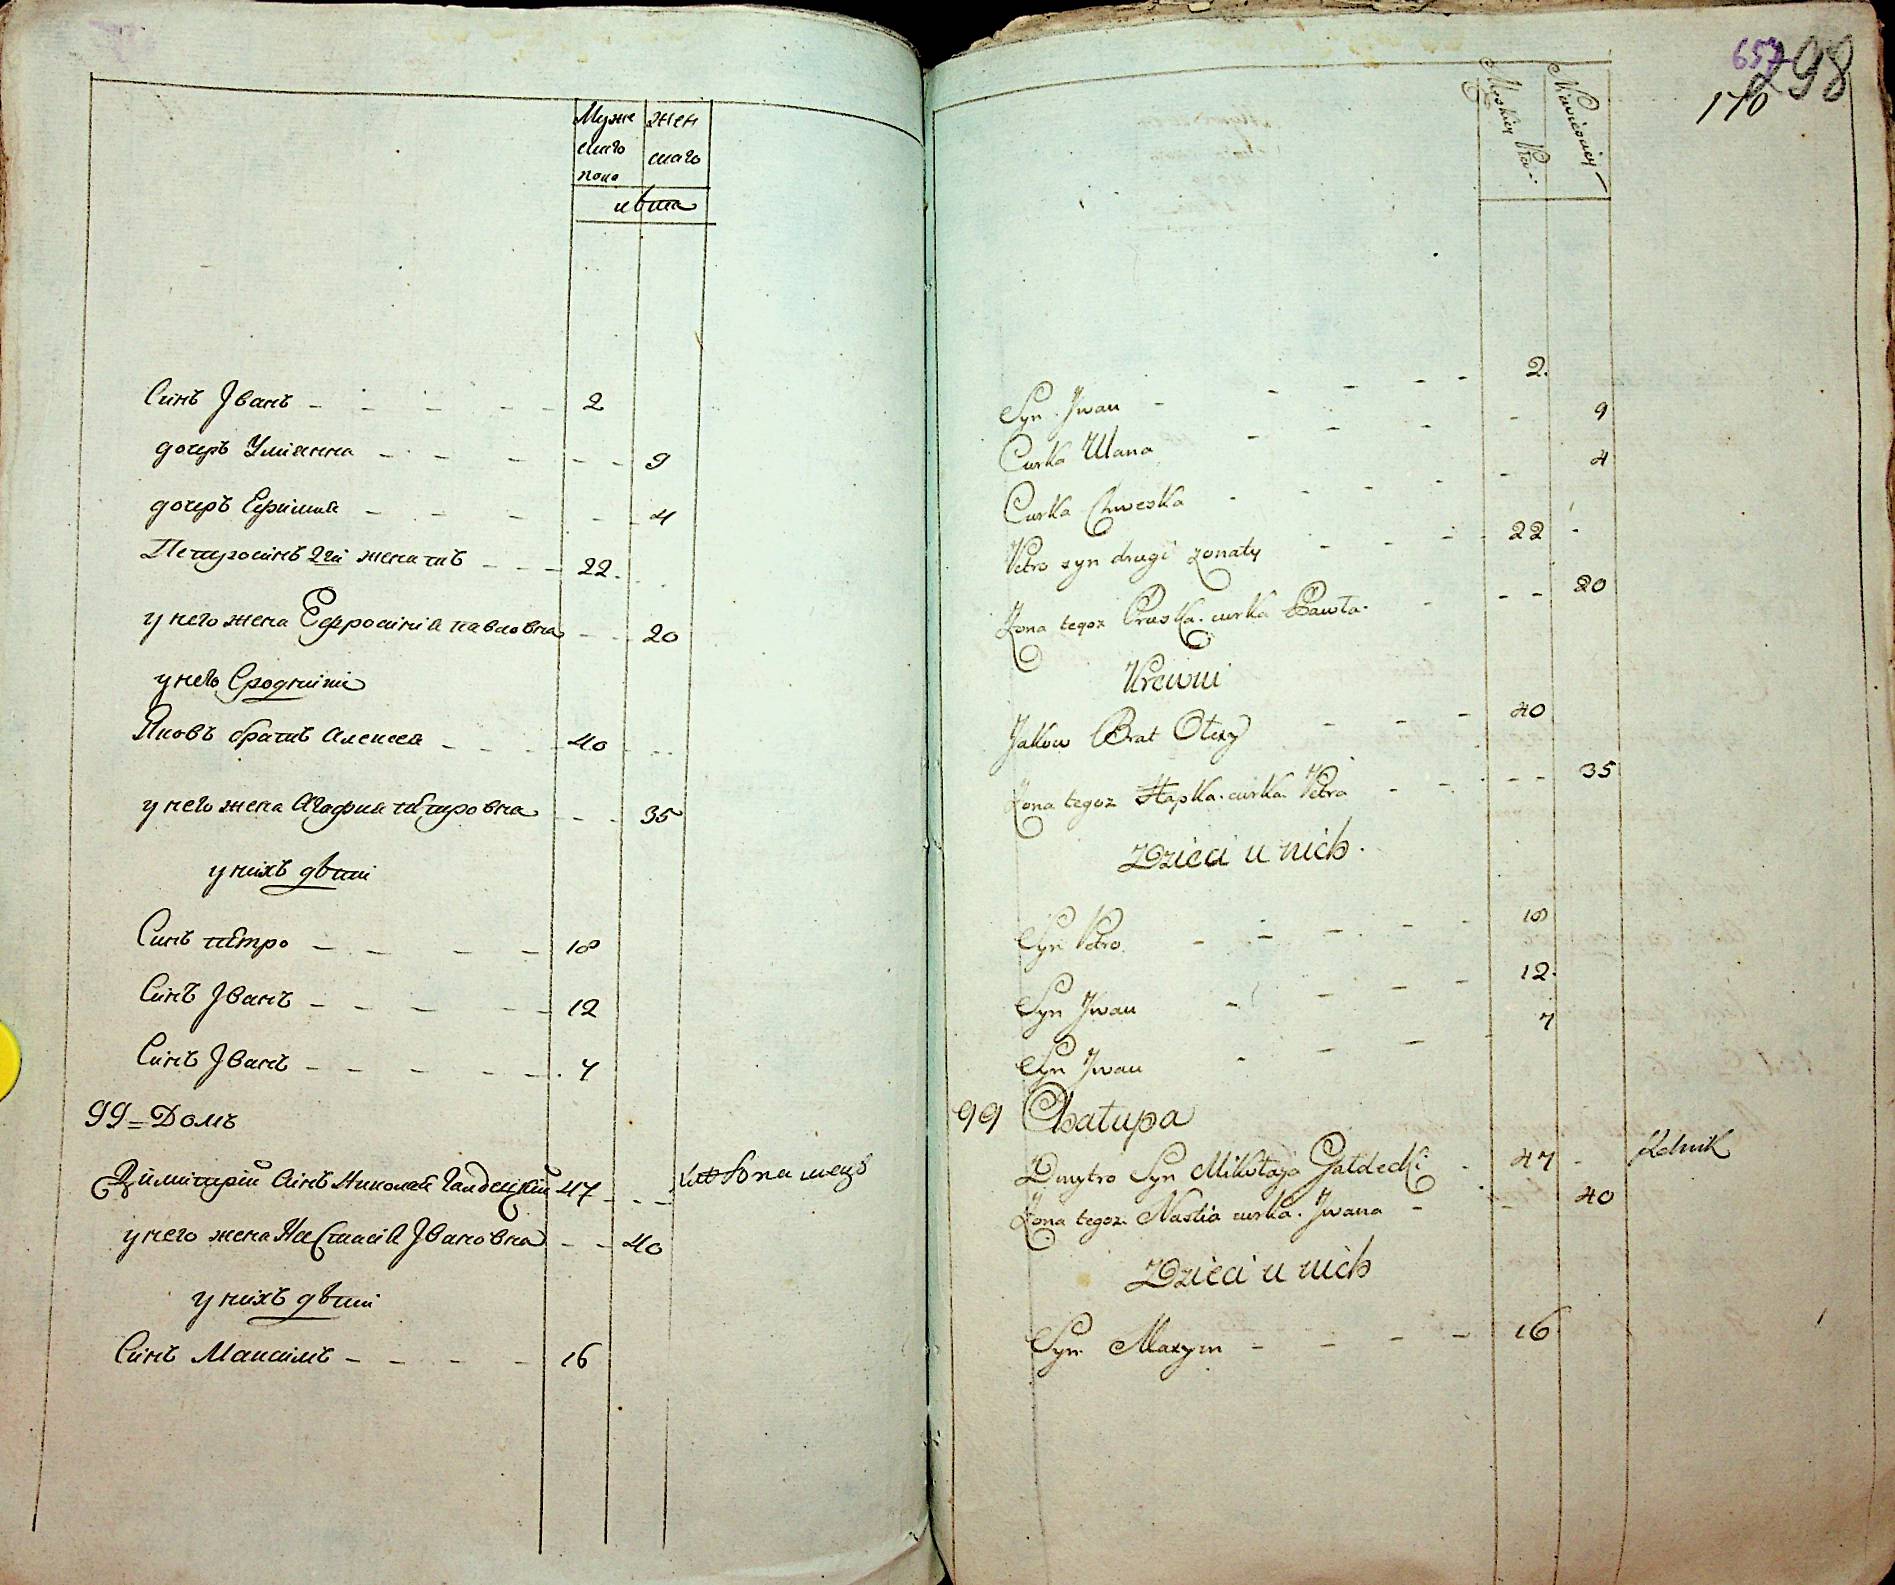 Муже
скаго
пола
жен
скаго
лѣта
Синъ Іванъ 2
дочеръ Уліянна 9
дочеръ Ефимия 4
Петро синъ 2й женатъ 22
у него жена Ефросинія павловна 20
у него Сродники
Яковъ братъ Алексея 40
у него жена Агафия петровна 35
у нихъ дѣти
Синъ петро 18
Синъ Іванъ 12
Синъ Іванъ 7
99 = Домъ
Димитрій синъ Николая Галдецкій 47 хлѣбопашецъ
у него жена Настасія Івановна 40
у нихъ дѣти
Синъ Максимъ 16
657
298
170
Męskiey Płci
Niewieściey
Syn Jwan 2
Curka Ulana 9
Curka Chweska 4
Petro syn drugi zonaty 22
Zona tegoz Pruska curka Pawła 20
Krewni
Jakow Brat Olexy 40
Zona tegoz Hapka curka Petra 35
Dzieci u nich
Syn Petro 18
Syn Jwan 12
Syn Jwan 7
99 Chatupa
Dmytro Syn Mikołaja Gałdecki 47 Rolnik
Zona tegoz Nastia curka Jwana 40
Dzieci u nich
Syn Maxym 16